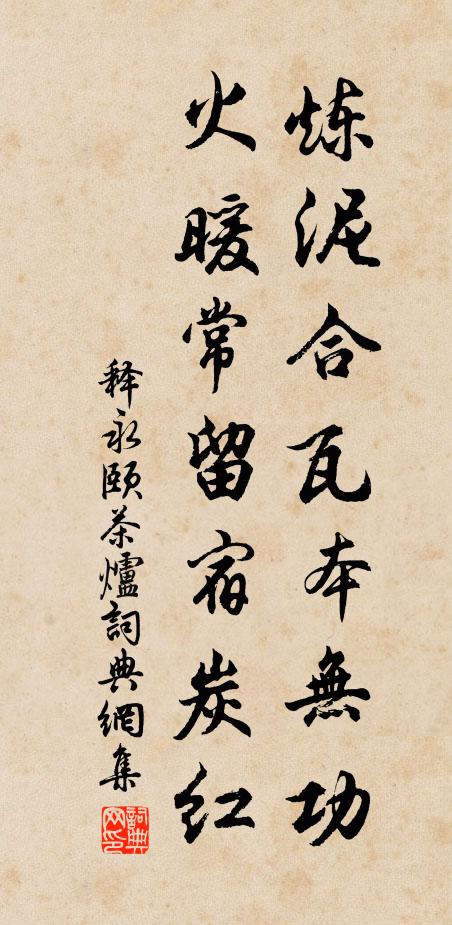 炼泥合瓦本無功
火暖常留宿炭红
释永颐茶爐詞典網集
詞典网印